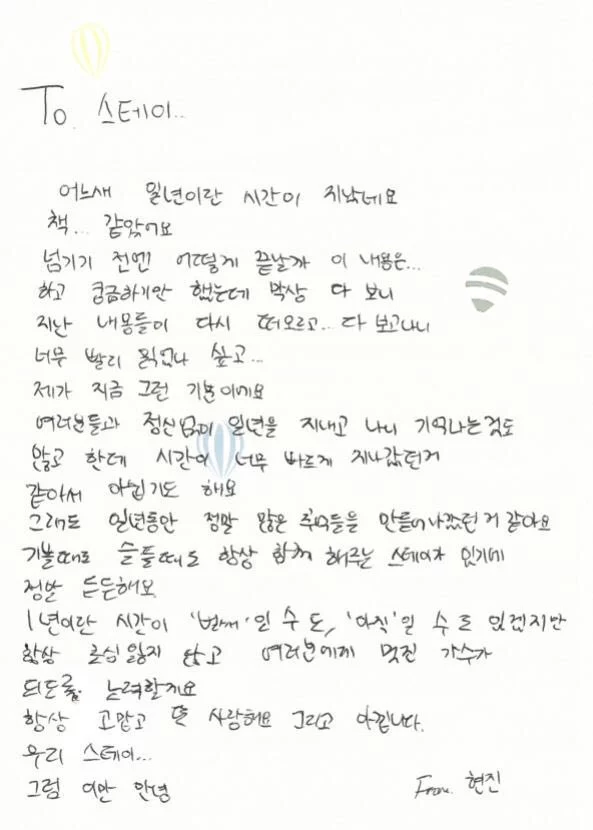 To. 스테이..
어느새 일년이란 시간이 지났네요
책... 같았어요
넘기기 전엔 어떻게 끝날까 이 내용은...
하고 궁금하기만 했는데 막상 다 보니
지난 내용들이 다시 떠오르고... 다 보고나니
너무 빨리 읽었나 싶고...
제가 지금 그런 기분이에요
여러분들과 정신없이 일년을 지내고 나니 기억나는것도
많고 한데 시간이 너무 빠르게 지나갔던거
같아서 아쉽기도 해요
그래도 일년동안 정말 많은 추억들을 만들어나갔던 거 같아요
기쁠때도 슬플때도 항상 함께 해주는 스테이가 있기에
정말 든든해요
1년이란 시간이 '벌써'일 수 도, '아직'일 수 도 있겠지만
항상 초심 잃지 않고 여러분에게 멋진 가수가
되도록 노력할게요
항상 고맙고 또 사랑해요 그리고 아낍니다.
우리 스테이...
그럼 이만 안녕 From. 현진